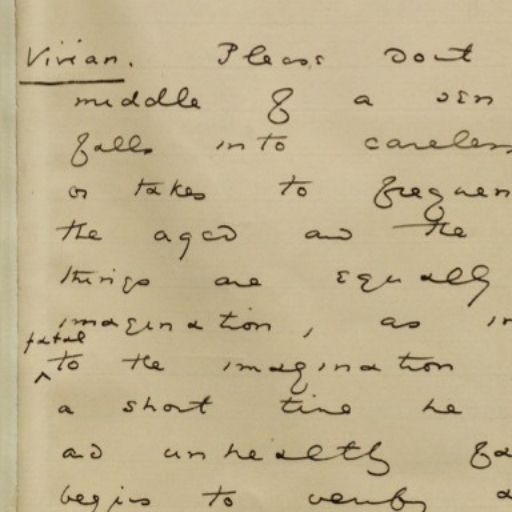 Vivian. Please dont
middle of a sen
falls into careless
or takes to frequen
the aged and the
things are equally
imagination, as in
fatal
to the imagination
a short time he
and unhealthy fa
begins to verify a